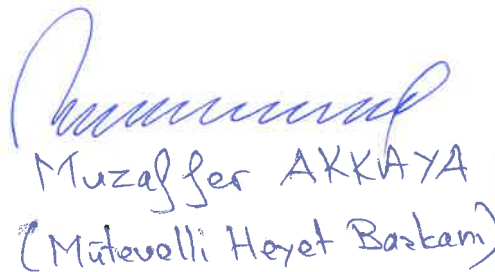 Muzaffer AKKAYA
(Mütevelli Heyet Başkanı)